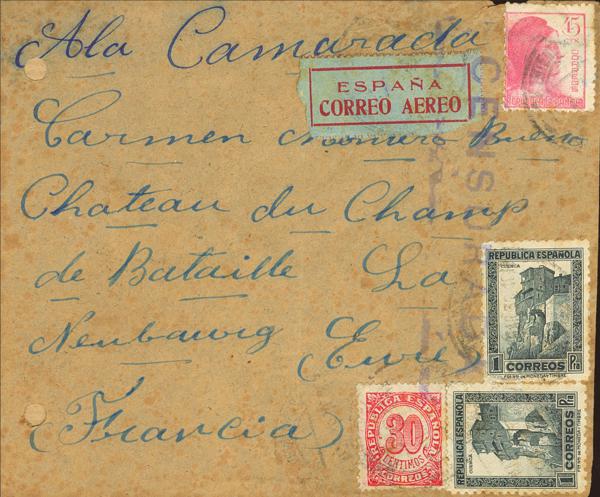 Ala Camarada
45
ESPAÑA
CORREO AEREO
CENSURA
Carmen Romero Bueno
Chateau du Champ
de Bataille La
Neubourg (Eure)
(Francia)
REPUBLICA ESPAÑOLA
CUENCA
1 CORREOS Pta
REPUBLICA ESPAÑOLA
30
CENTIMOS
CORREOS
REPUBLICA ESPAÑOLA
CUENCA
1 CORREOS Pta